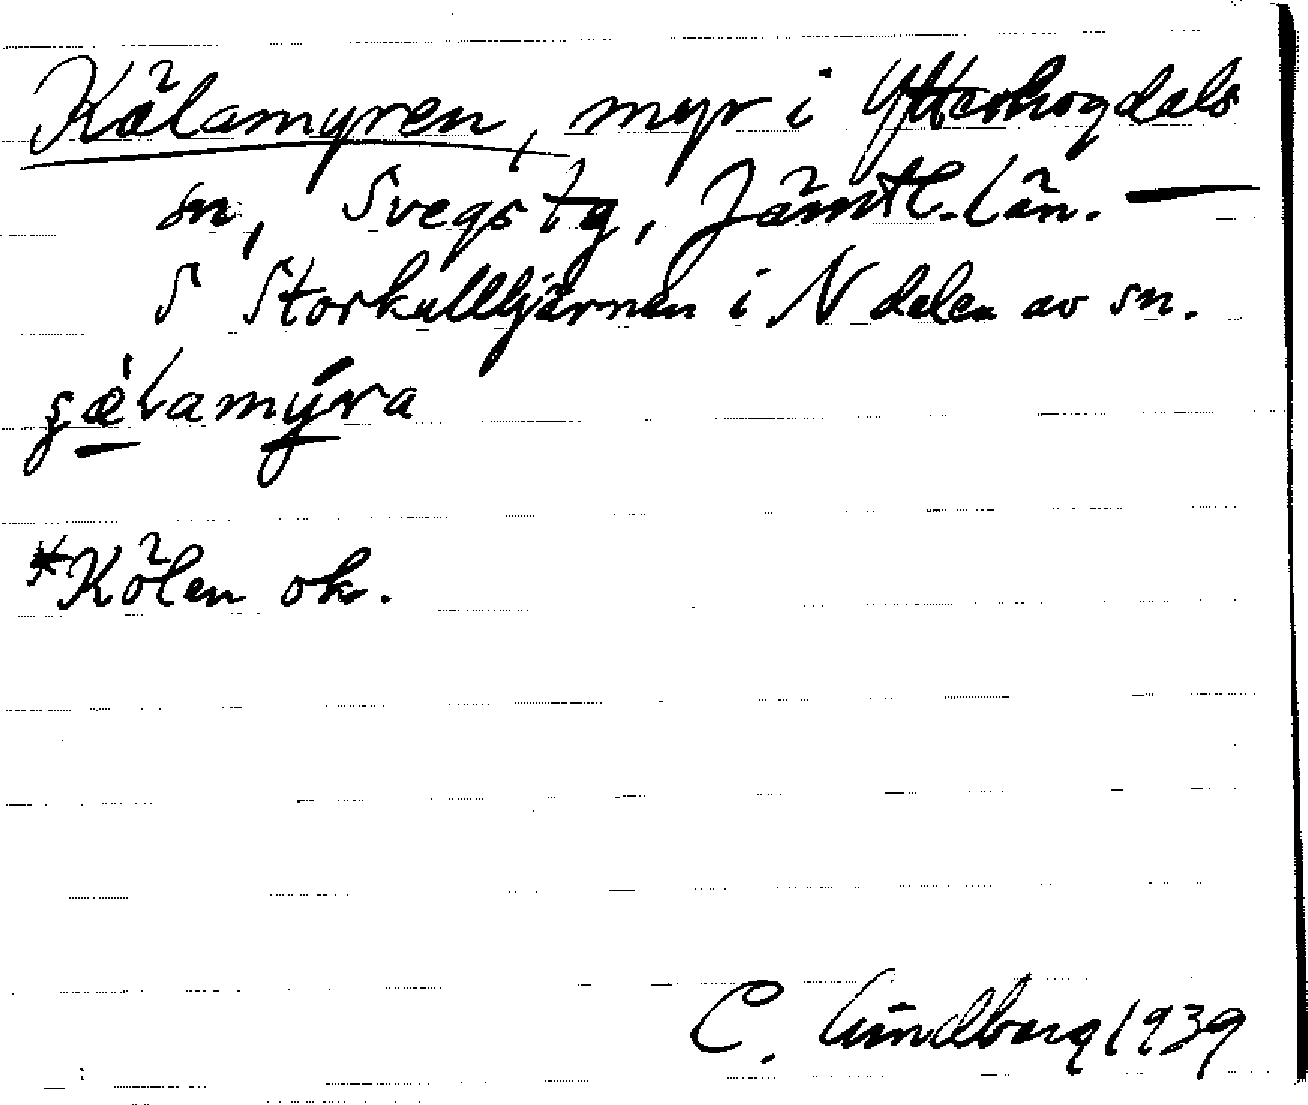 Kälamyren, myr i Ytterhogdals
sn, Svegs tg, Jämtl. län. —
S Storkulltjärnen i N delen av sn.
çæ̀lamýra
*Kölen ok.
C. Lundberg 1939